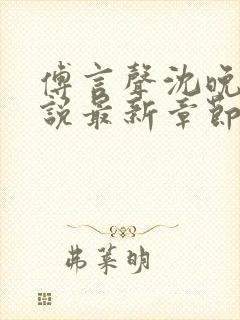 傅言聲沈晚
說最新章節
弗萊明